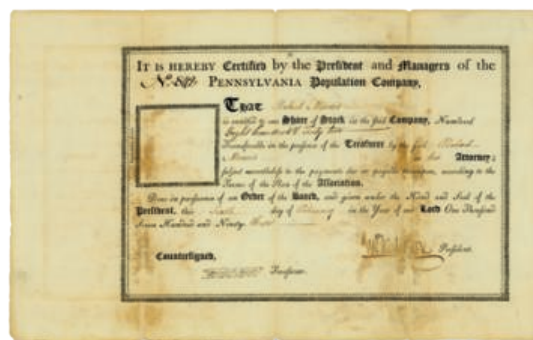 IT IS HEREBY Certified by the President and Managers of the
No. PENNSYLVANIA Population Company,
THAT Robert Morris
is entitled to one Share of Stock in the said Company, Numbered
Eight hundred & forty two
Transferable in the presence of the Treasurer by the said Robert
Morris or his Attorney;
subject nevertheless to the payments due or payable thereupon, according to the
Terms of the Plan of the Association.
Done in pursuance of an Order of the Board, and given under the Hand and Seal of the
President, this day of February in the Year of our Lord One Thousand
Seven Hundred and Ninety
President.
Countersigned,
Treasurer.